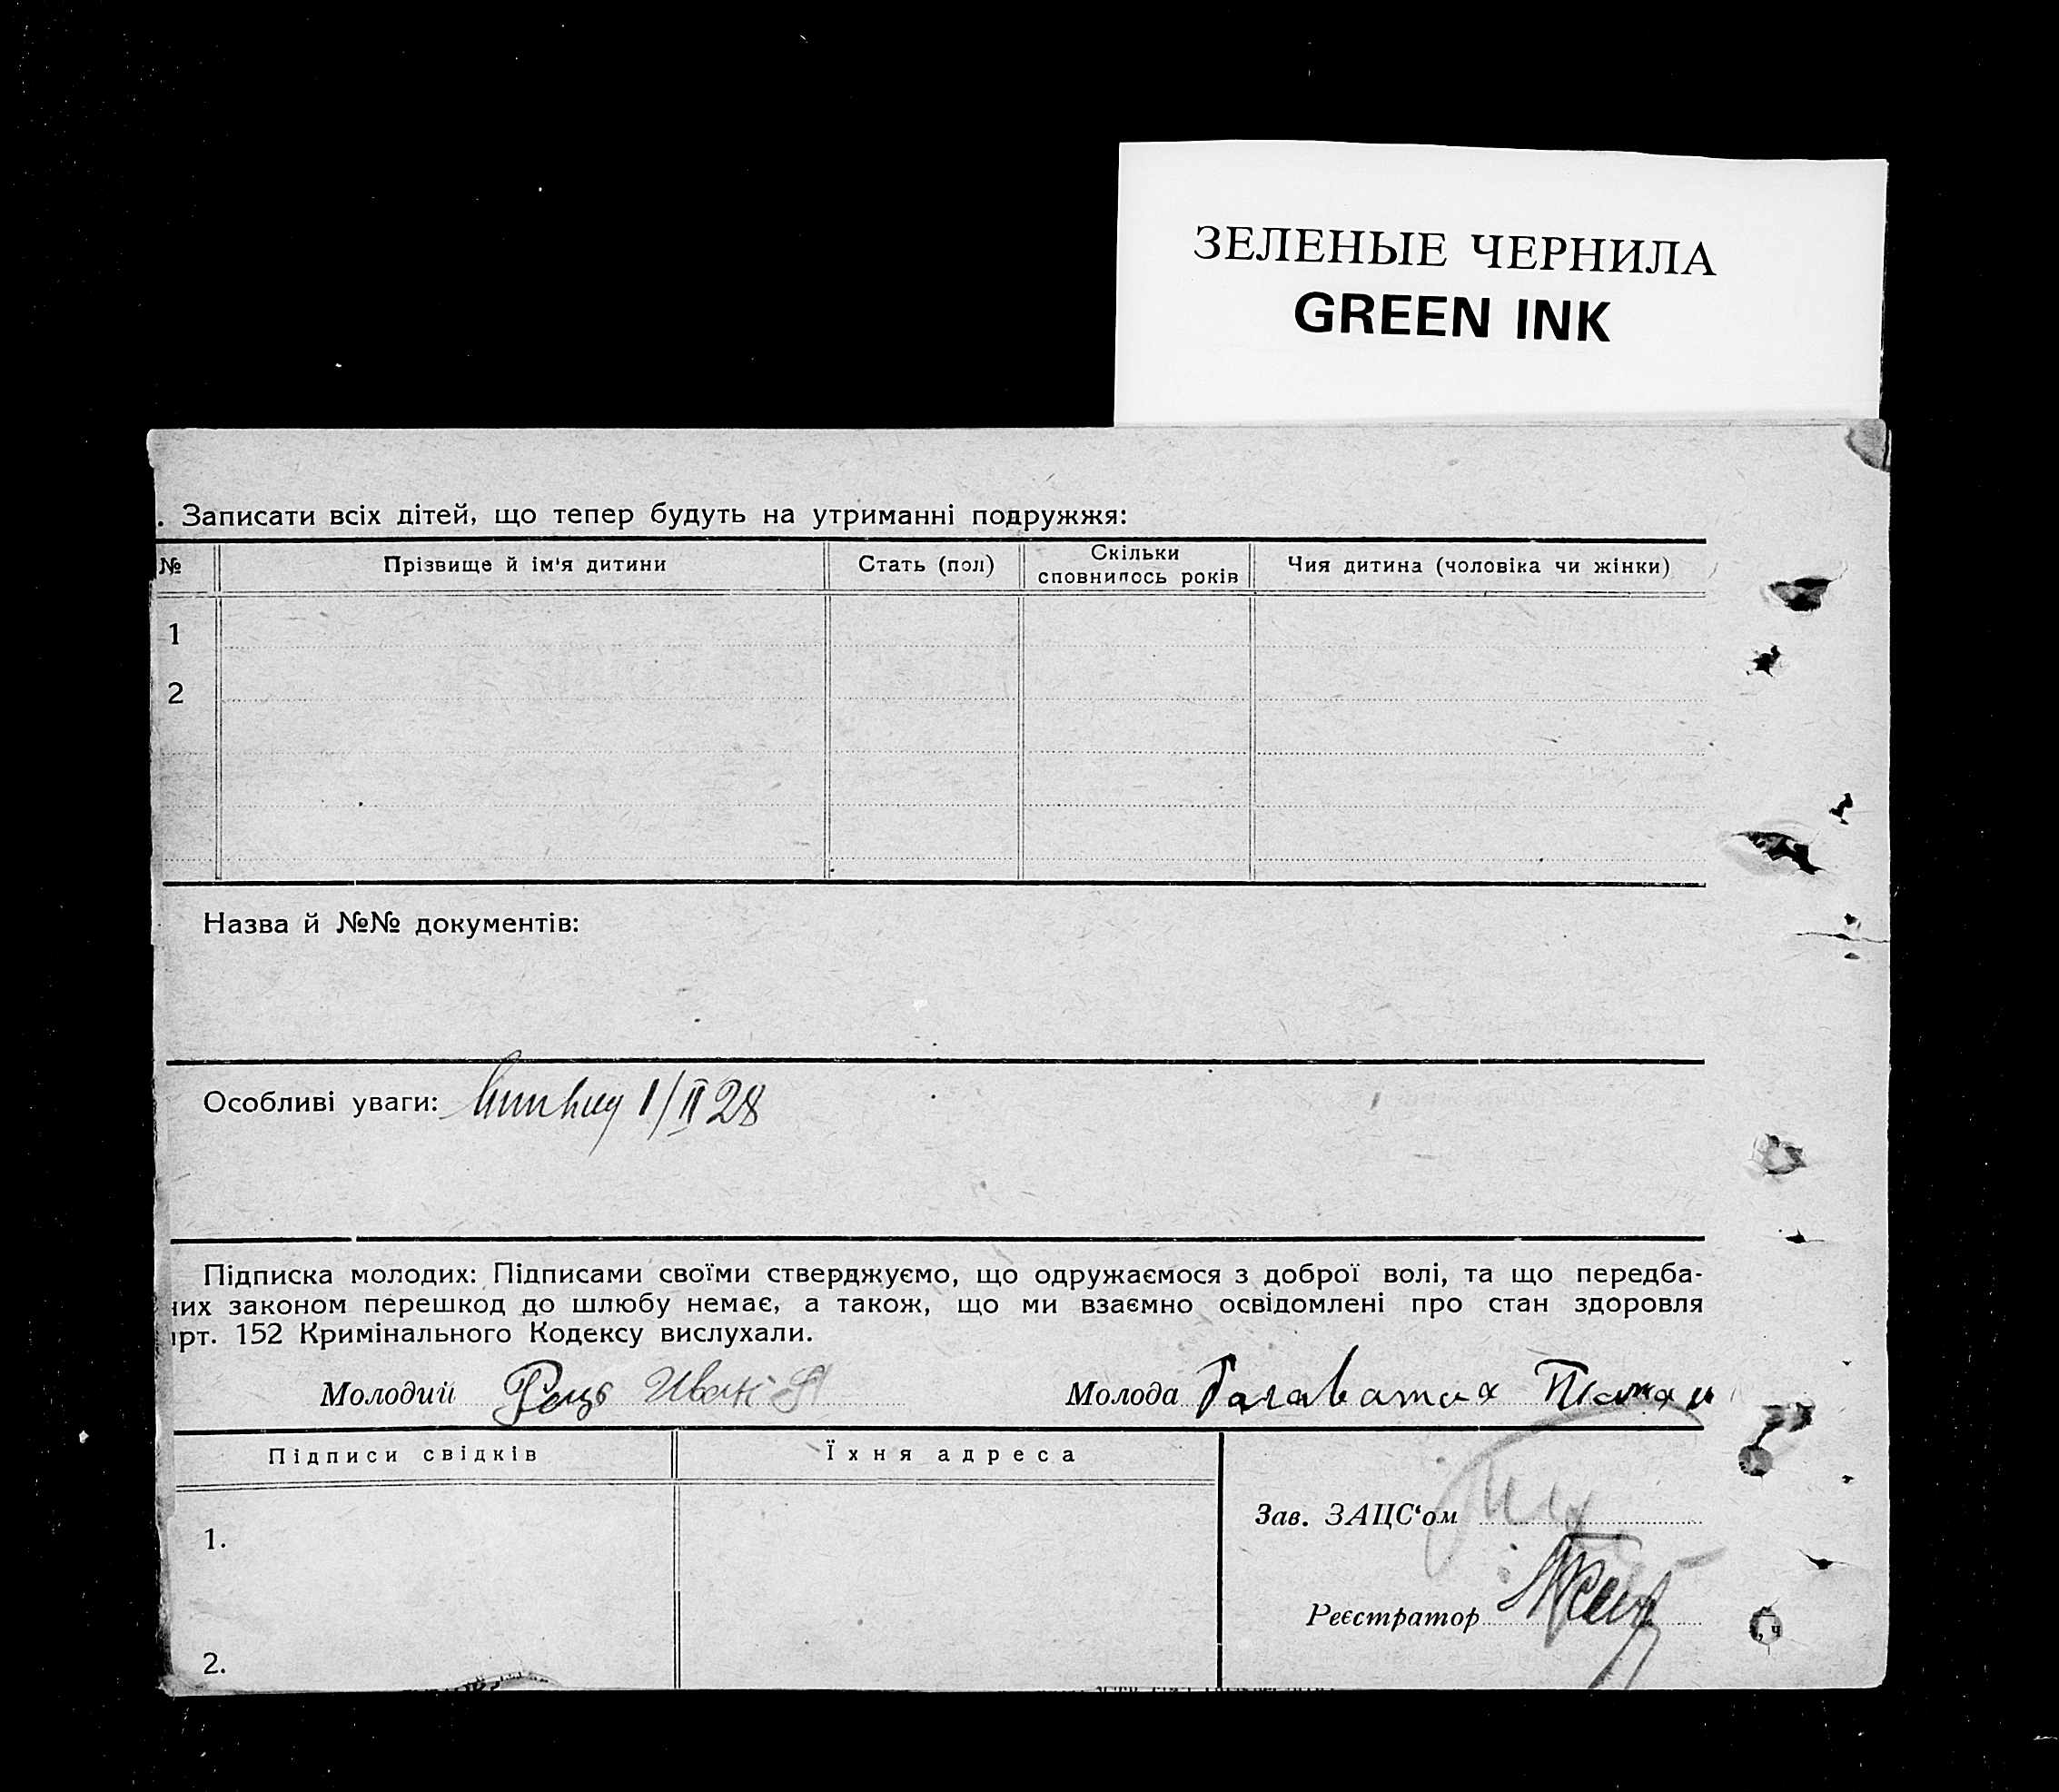 ЗЕЛЕНЫЕ ЧЕРНИЛА
GREEN INK
. Записати всіх дітей, що тепер будуть на утриманні подружжя:
№ Прізвище й ім'я дитини Стать (пол) Скільки сповнилось років Чия дитина (чоловіка чи жінки)
1
2
Назва й №№ документів:
Особливі уваги: 1/II 28
Підписка молодих: Підписами своїми стверджуємо, що одружаємося з доброї волі, та що передба-
них законом перешкод до шлюбу немає, а також, що ми взаємно освідомлені про стан здоровля
арт. 152 Кримінального Кодексу вислухали.
Молодий Рець Иван Молода
Підписи свідків Їхня адреса
Зав. ЗАЦС'ом
1.
Реєстратор
2.